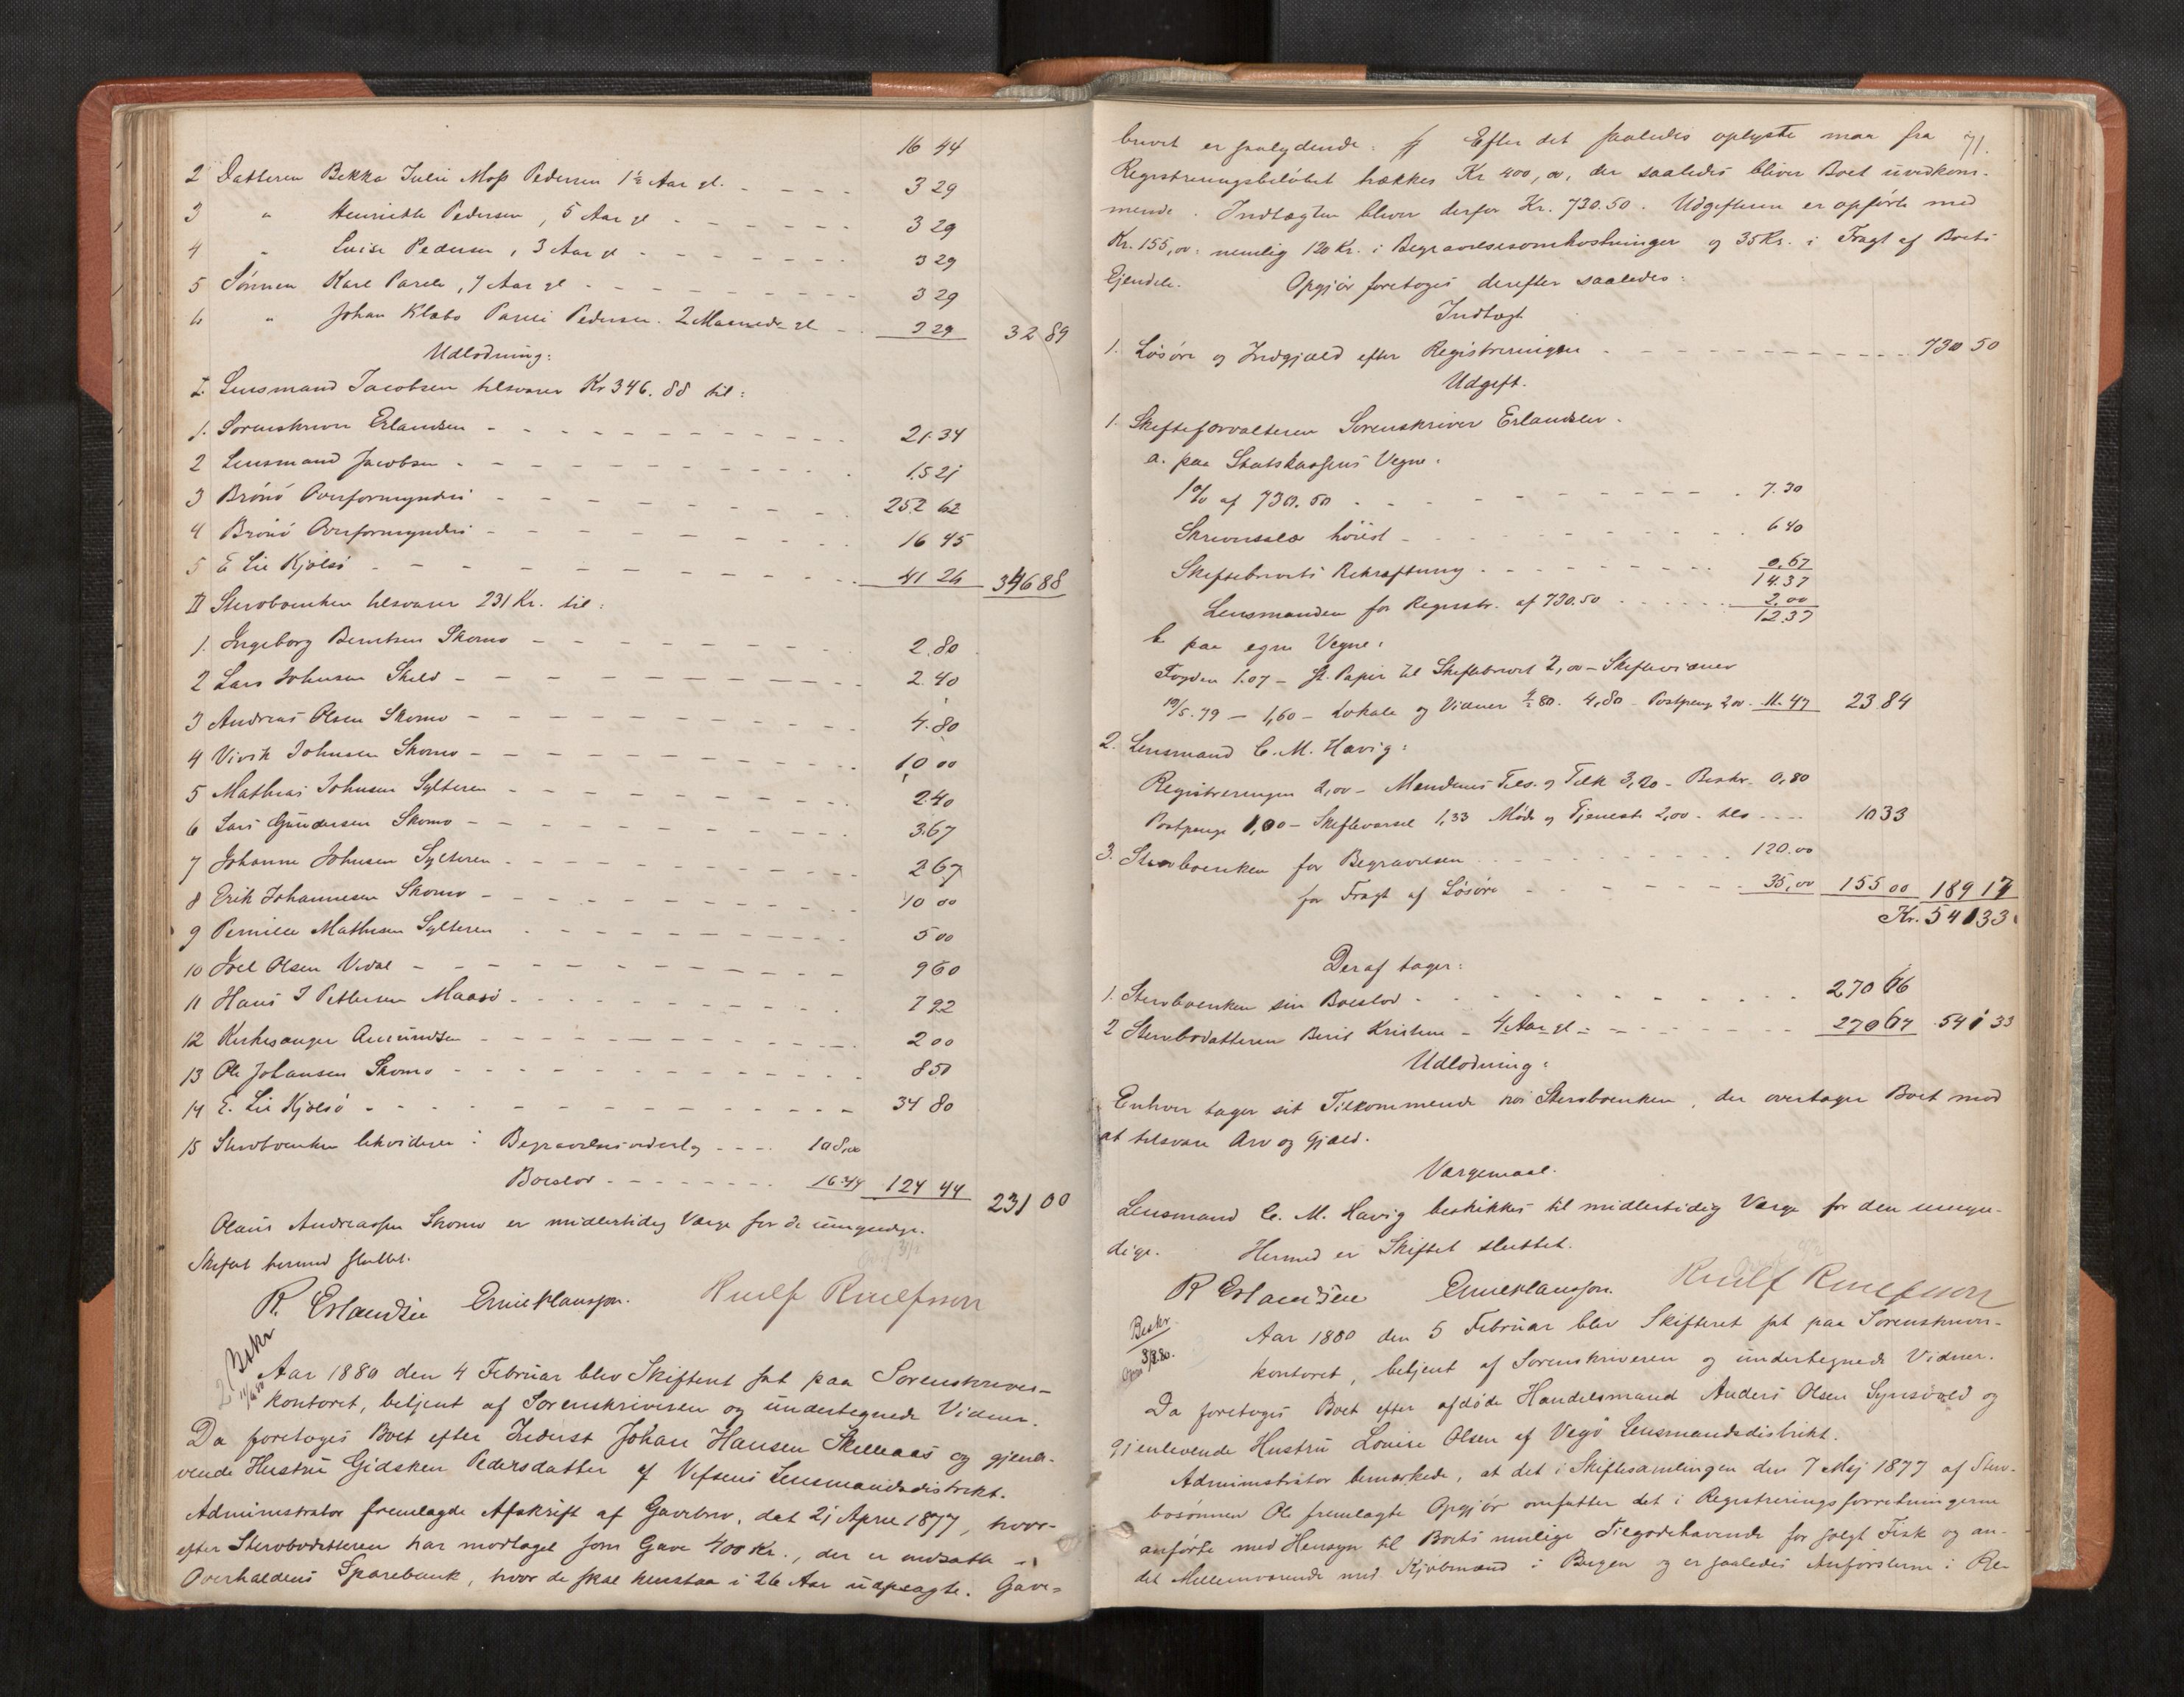 16 44
2 Datteren Bekka Julie Moss Pedersen 1½ Aar gl. - - - - 3 29
3 " Henriette Pedersen, 5 Aar gl - - - - - - 3 29
4 " Luise Pedersen, 3 Aar gl - - - - - - - 3 29
5 Sønnen Karl Parele, 7 Aar gl - - - - - - - - - 3 29
6 " Johan Klabo Pareli Pedersen. 2 Maaneder gl - 3 29 32 89
Udlodning:
I. Lensmand Jacobsen tilsvarer Kr 346.88 til:
1. Sorenskriver Erlandsen - - - - - - - - - - 21.34
2 Lensmand Jacobsen - - - - - - - - - - 15 21
3 Brönö Overformynderi - - - - - - - - - 252 62
4 Brönö Overformynderi - - - - - - - - - 16 45
5 E Lie Kjölsö - - - - - - - - - - - 41 26 346 88
II Stervboenken tilsvarer 231 Kr. til:
1. Ingeborg Berntsen Skomo - - - - - - - - 2.80
2 Lars Johnsen Skeld - - - - - - - - - - 2.40
3 Andreas Olsen Skomo - - - - - - - - - - 4.80
4 Vivik Johnsen Skomo - - - - - - - - - - 10 00
5 Mathias Johnsen Sylteren - - - - - - - - - 2.40
6 Lars Gundersen Skomo - - - - - - - - - - 3.67
7 Johanna Johnsen Sylteren - - - - - - - - - 2 67
8 Erik Johannesen Skomo - - - - - - - - - - 10 00
9 Pernille Mathisen Sylteren - - - - - - - - - 5 00
10 Joel Olsen Vedal - - - - - - - - - - - 9 60
11 Hans J Pettersen Maasö - - - - - - - - - 7 92
12 Kirkesanger Amundsen - - - - - - - - - - 2 00
13 Ole Johansen Skomo - - - - - - - - - - - 8 50
14 E. Lie Kjölsö - - - - - - - - - - - - - 34 80
15 Stervboenken likviderer: Begravelsesudlæg - - - - 108,00
Boeslod - - - - - - - - 16.44 124 44 231 00
Olaus Andreassen Skomo er midlertidig Værge for de umyndige.
Skiftet hermed sluttet.
R. Erlandsen Arne Klausson. Hrulf Rrulfsson
Beskr
11/6 80
Aar 1880 den 4 Februar blev Skifteret sat paa Sorenskriver-
kontoret, betjent af Sorenskriveren og undertegnede Vidner.
Da foretoges Boet efter Inderst Johan Hansen Skillaas og gjenle-
vende Hustru Gidsken Pedersdatter af Vefsens Lensmandsdistrikt.
Administrator fremlagde Afskrift af Gavebrev, dat 21 April 1877, hvor-
efter Stervbodatteren har modtaget som Gave 400 Kr., der er indsatte i
Overhaldens Sparebank, hvor de skal henstaa i 26 Aar uopsagte. Gave-
71.
brevet er saalydende: # Efter det saaledes oplyste maa fra
Registreringsbeløbet trækkes Kr 400,00, der saaledes bliver Boet uvedkom-
mende. Indtægten bliver derfor Kr. 730.50. Udgifterne er opførte med
Kr. 155,00: nemlig 120 Kr. i Begravelsesomkostninger og 35 Kr. i Fragt af Boets
Ejendele. Opgjør foretoges derefter saaledes:
Indtægt
1. Løsøre og Indgjæld efter Registreringen - - - - - - - - - - - - 730 50
Udgift.
1. Skifteforvalteren Sorenskriver Erlandsen.
a. paa Statskassens Vegne:
1% af 730.50 - - - - - - - - - - - - 7.30
Skriversalær höiest - - - - - - - - - - 6 40
Skiftebrevets Bekræftning - - - - - - - - - 0,67
14.37
Lensmanden for Registr. af 730.50 - - - - - - 2,00
12.37
b paa egne Vegne:
Fogden 1.07 - St. Papir til Skiftebrevet 2,00 - Skiftevidner
19/5.79 - 1,60 - Lokale og Vidner 4/2 80. 4,80 - Postpenge 2,00. 11.47 23 84
2. Lensmand C. M. Havig:
Registreringen 2,00 - Mændenes Tils. og Tilk 3,20 - Beskr. 0,80
Postpenge 1,00 - Skiftevarsel 1,33 Möde og Tjeneste 2,00. tils - - - - 10 33
3. Stervboenken for Begravelsen - - - - - - - - - - - 120.00
for Fragt af Løsøre - - - - - - - - 35,00 155 00 189 17
Kr. 541 33
Deraf tager:
1. Stervboenken sin Boeslod - - - - - - - - - - - 270 66
2 Stervbodatteren Berit Kristine - 4 Aar gl - - - - - - - - - 270 67 541 33
Udlodning:
Enhver tager sit Tilkommende hos Stervboenken, der overtager Boet mod
at tilsvare Arv og Gjæld.
Værgemaal.
Lensmand C. M. Havig beskikkes til midlertidig Værge for den umyn-
dige. Hermed er Skiftet sluttet.
R Erlandsen Arne Klausson. Hrulf Rrulfsson
Beskr.
3/8 80.
Aar 1880 den 5 Februar blev Skifteret sat paa Sorenskriver-
kontoret, betjent af Sorenskriveren og undertegnede Vidner.
Da foretoges Boet efter afdøde Handelsmand Anders Olsen Synsvold og
gjenlevende Hustru Louise Olsen af Vegö Lensmandsdistrikt.
Administrator bemærkede, at det i Skiftesamlingen den 7 Maj 1877 af Sterv-
bosønnen Ole fremlagte Opgjør omfatter det i Registreringsforretningerne
anførte med Hensyn til Boets mulige Tilgodehavende for solgt Fisk og an-
det Mellemværende med Kjøbmænd i Bergen og er saaledes Anførslerne i Re-